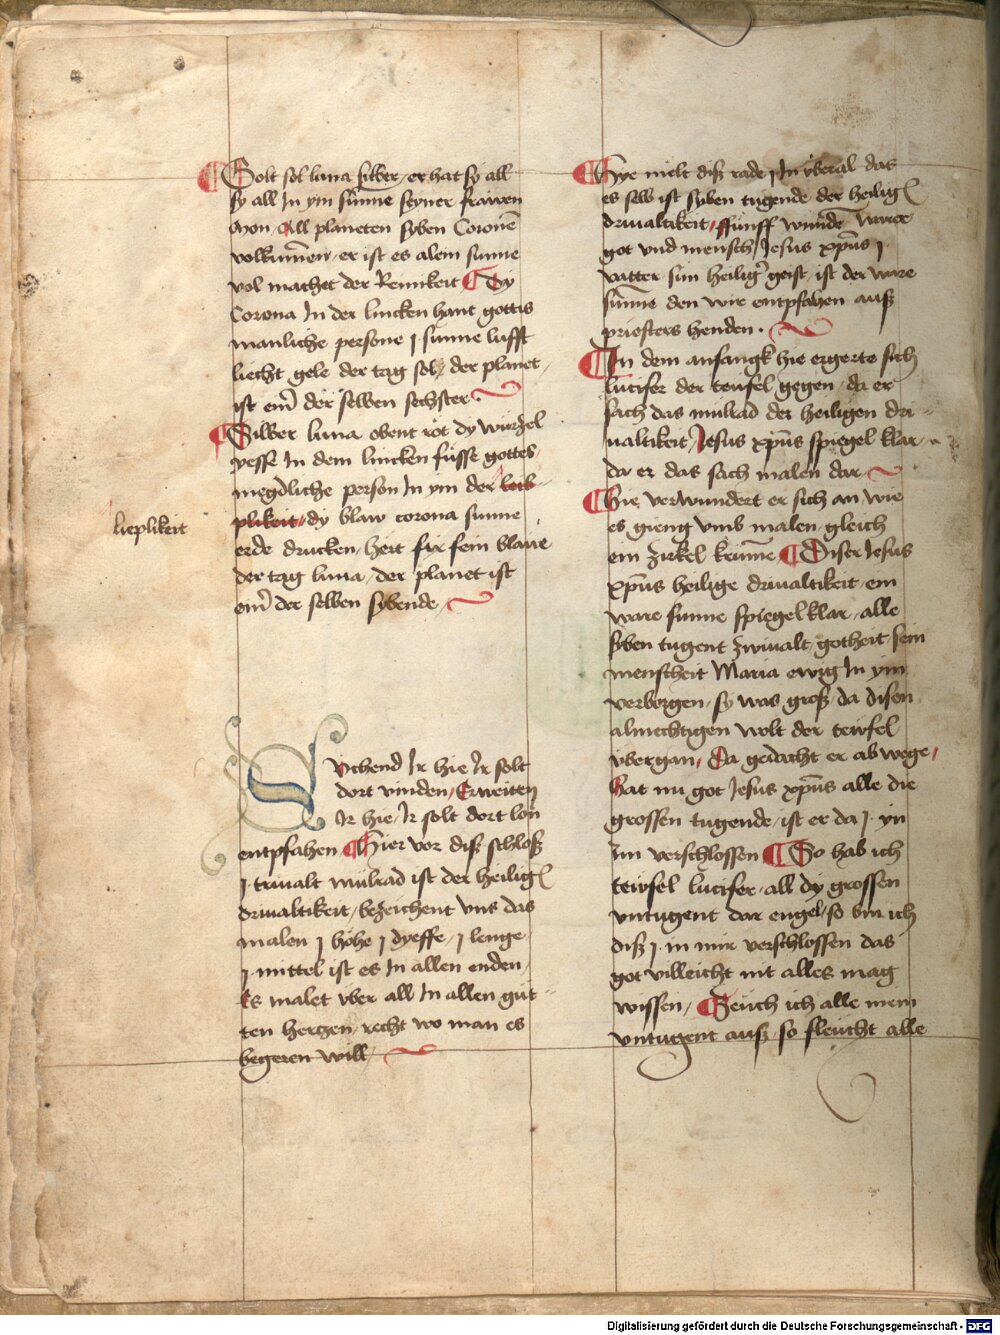 Golt sol luna silber / er hat sy all
sy all In ym sunne seyner frawen
mon / All planeten syben Coronen̄
volkumen̄ / er ist es alein sunne
vol machet der Reinikeit Dy
Corona In der lincken hant gottis
manliche persone j sunne lufft
liecht gele der tag sol / der planet /
ist ein̄ der selben sechster
Silber luna obent rot dy wurtzel
yesse In dem lincken fusse gottes /
megdliche person In ym der leib
plikeit / dy blaw corona sunne
lieplikeit
erde drucken / heit fix fein blawe
der tag luna / der planet ist
ein̄ der selben sybende /
Suchend Ir hie Ir solt
dort vinden / Erweiten
Ir hie / Ir solt dort lon
entpfahen Hier vor diß schloß
j trinalt mulrad ist der heilig
driualtikeit / bezeichent vns das
malen j höhe j dyeffe / j lenge
j mittel ist es In allen enden
Es malet vber all In allen gut
ten hertzen / recht wo man es
begeren will /
Hye melt diß rade j In vberal das
es selb ist syben tugende der heilig
driualtikeit / ffunff wunde ware
got vnd mensch / Jesus xpūs j
vatter sun heilig geist / ist der ware
sunne den wir entpfahen auß
priesters henden .
In dem anfangk hie ergerte sich
lucifer der teufel gegen / da er
sach das mulrad der heiligen dri
ualtikeit / Jesus xpūs spiegel klar
da er das sach malen dar
Hie verwundert er sich an wie
es gieng vmb malen / gleich
ein zirkel krumē Diser Jesus
xpūs heilige driualtikeit / ein
ware sunne spiegel klar / alle
syben tugent zwiualt / gotheit sein
menscheit Maria ewig In ym
verborgen / sy was groß / da disen
almechtigen wolt der teufel
vbergan / Da gedacht er ab wege /
hat nu got Jesus xpūs alle die
grossen tugende / ist er da j yn
Im verschlossen So hab ich
teufel lucifer / all dy grossen
vntugent dar engel / so bin ich
diß j in mir verschlossen das
got villeicht nit alles mag
wissen / Zeuch ich alle mein
vntugent auß / so fleucht alle
Digitalisierung gefördert durch die Deutsche Forschungsgemeinschaft - DFG